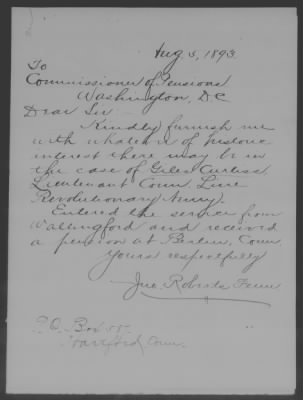 Aug. 5, 1893.
To
Commissioner of Pensions
Washington, DC
Dear Sir
Kindly furnish me
with whatever of historic
interest there may be in
the case of Giles Curtiss
Lieutenant Conn. Line
Revolutionary Army.
Entered the service from
Wallingford and received
a pension at Berlin, Conn.
Yours respectfully
Roberts Fenn
P.O. Box
Hartford Conn.